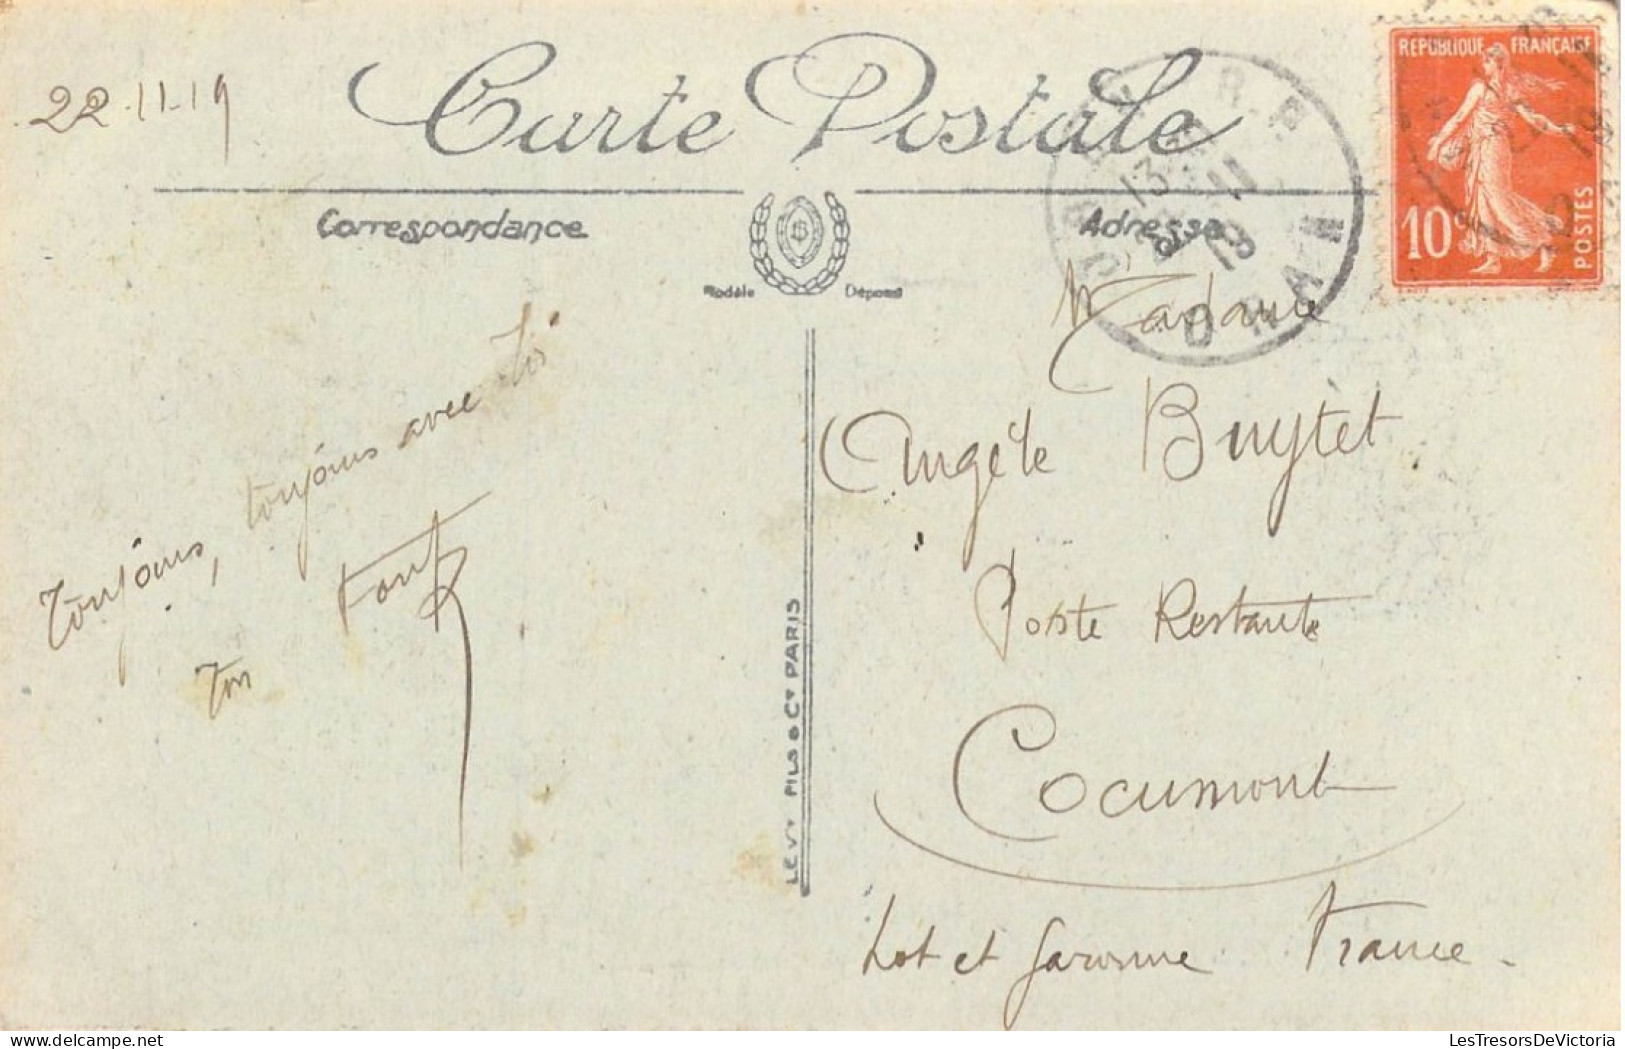 22.11.19
Carte Postale
RÉPUBLIQUE FRANÇAISE
10c
POSTES
13
11
19
ORAN
Correspondance
Adresse
Modèle Déposé
LEVY FILS & Cie PARIS
Toujours, toujours avec toi
Ton
Madame
Angèle Buytet
Poste Restante
Cocumont
Lot et Garonne France.
LesTresorsDeVictoria